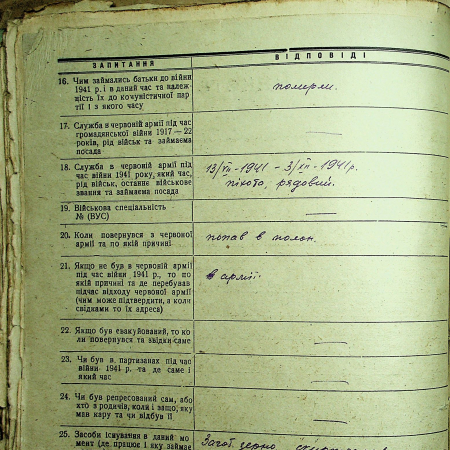 ЗАПИТАННЯ
ВІДПОВІДІ
16. Чим займались батьки до війни
1941 р. і в даний час та належ-
ність їх до комуністичної пар-
тії і з якого часу
померли.
17. Служба в червоній армії під час
громадянської війни 1917 — 22
років, рід військ та займаєма
посада
18. Служба в червоній армії під
час війни 1941 року, який час,
рід військ, останнє військове
звання та займаєма посада
13/VII-1941 - 3/XII-1941р.
піхота, рядовий.
19. Військова спеціальність
№ (ВУС)
20. Коли повернувся з червоної
армії та по якій причині
попав в полон.
21. Якщо не був в червоній армії
під час війни 1941 р., то по
якій причині та де перебував
підчас відходу червоної армії
(чим може підтвердити, а коли
свідками то їх адреса)
в армії
22. Якщо був евакуйований, то ко-
ли повернувся та звідки саме
23. Чи був в партизанах під час
війни 1941 р. та де саме і
який час
24. Чи був репресований сам, або
хто з родичів, коли і защо, яку
мав кару та чи відбув її
25. Засоби існування в даний мо-
мент (де працює і яку займає
Загот зерно